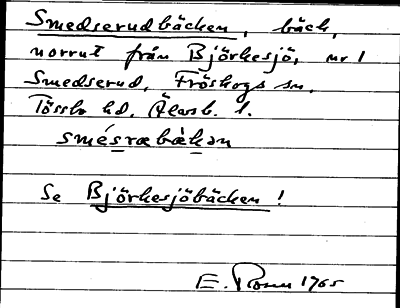 Smedserudbäcken, bäck,
norrut från Björkesjö, nr 1
Smedserud, Fröskogs sn,
Tössbo hd, Älvsb. l.
smésrabàkan
Se Björkesjöbäcken!
E. Rosen 1965